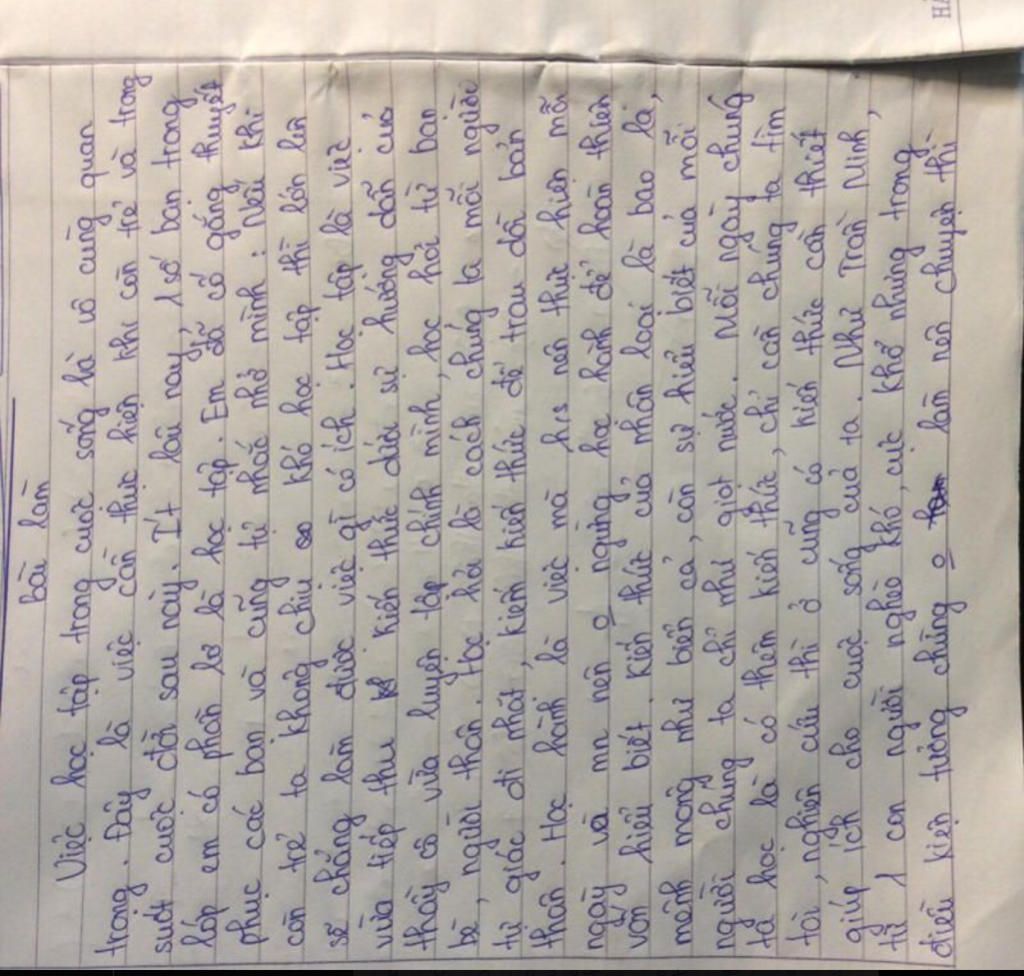 Bài làm
Việc học tập trong cuộc sống là vô cùng quan
trọng. Đây là việc cần thực hiện khi còn trẻ và trong
suốt cuộc đời sau này. Ít lâu nay, 1 số bạn trong
lớp em có phần lơ là học tập. Em đã cố gắng thuyết
phục các bạn và cũng tự nhắc nhở mình: Nếu khi
còn trẻ ta không chịu khó học tập thì lớn lên
sẽ chẳng làm được việc gì có ích. Học tập là việc
vừa tiếp thu kiến thức dưới sự hướng dẫn của
thầy cô vừa luyện tập chính mình, học hỏi từ bạn
bè, người thân. Học hỏi là cách chúng ta mỗi người
tự giác đi phát, kiếm kiến thức để trau dồi bản
thân. Học hành là việc mà hcs nên thực hiện mỗi
ngày và mn nên o ngừng học hành để hoàn thiện
vốn hiểu biết. Kiến thức của nhân loại là bao la,
mênh mông như biển cả, còn sự hiểu biết của mỗi
người chúng ta chỉ như giọt nước. Mỗi ngày chúng
ta học là có thêm kiến thức, chỉ cần chúng ta tìm
tòi, nghiên cứu thì ở cũng có kiến thức cần thiết
giúp ích cho cuộc sống của ta. Như Trần Minh,
từ 1 con người nghèo khó, cực khổ nhưng trong
điều kiện tưởng chừng o làm nên chuyện thì
HẢ